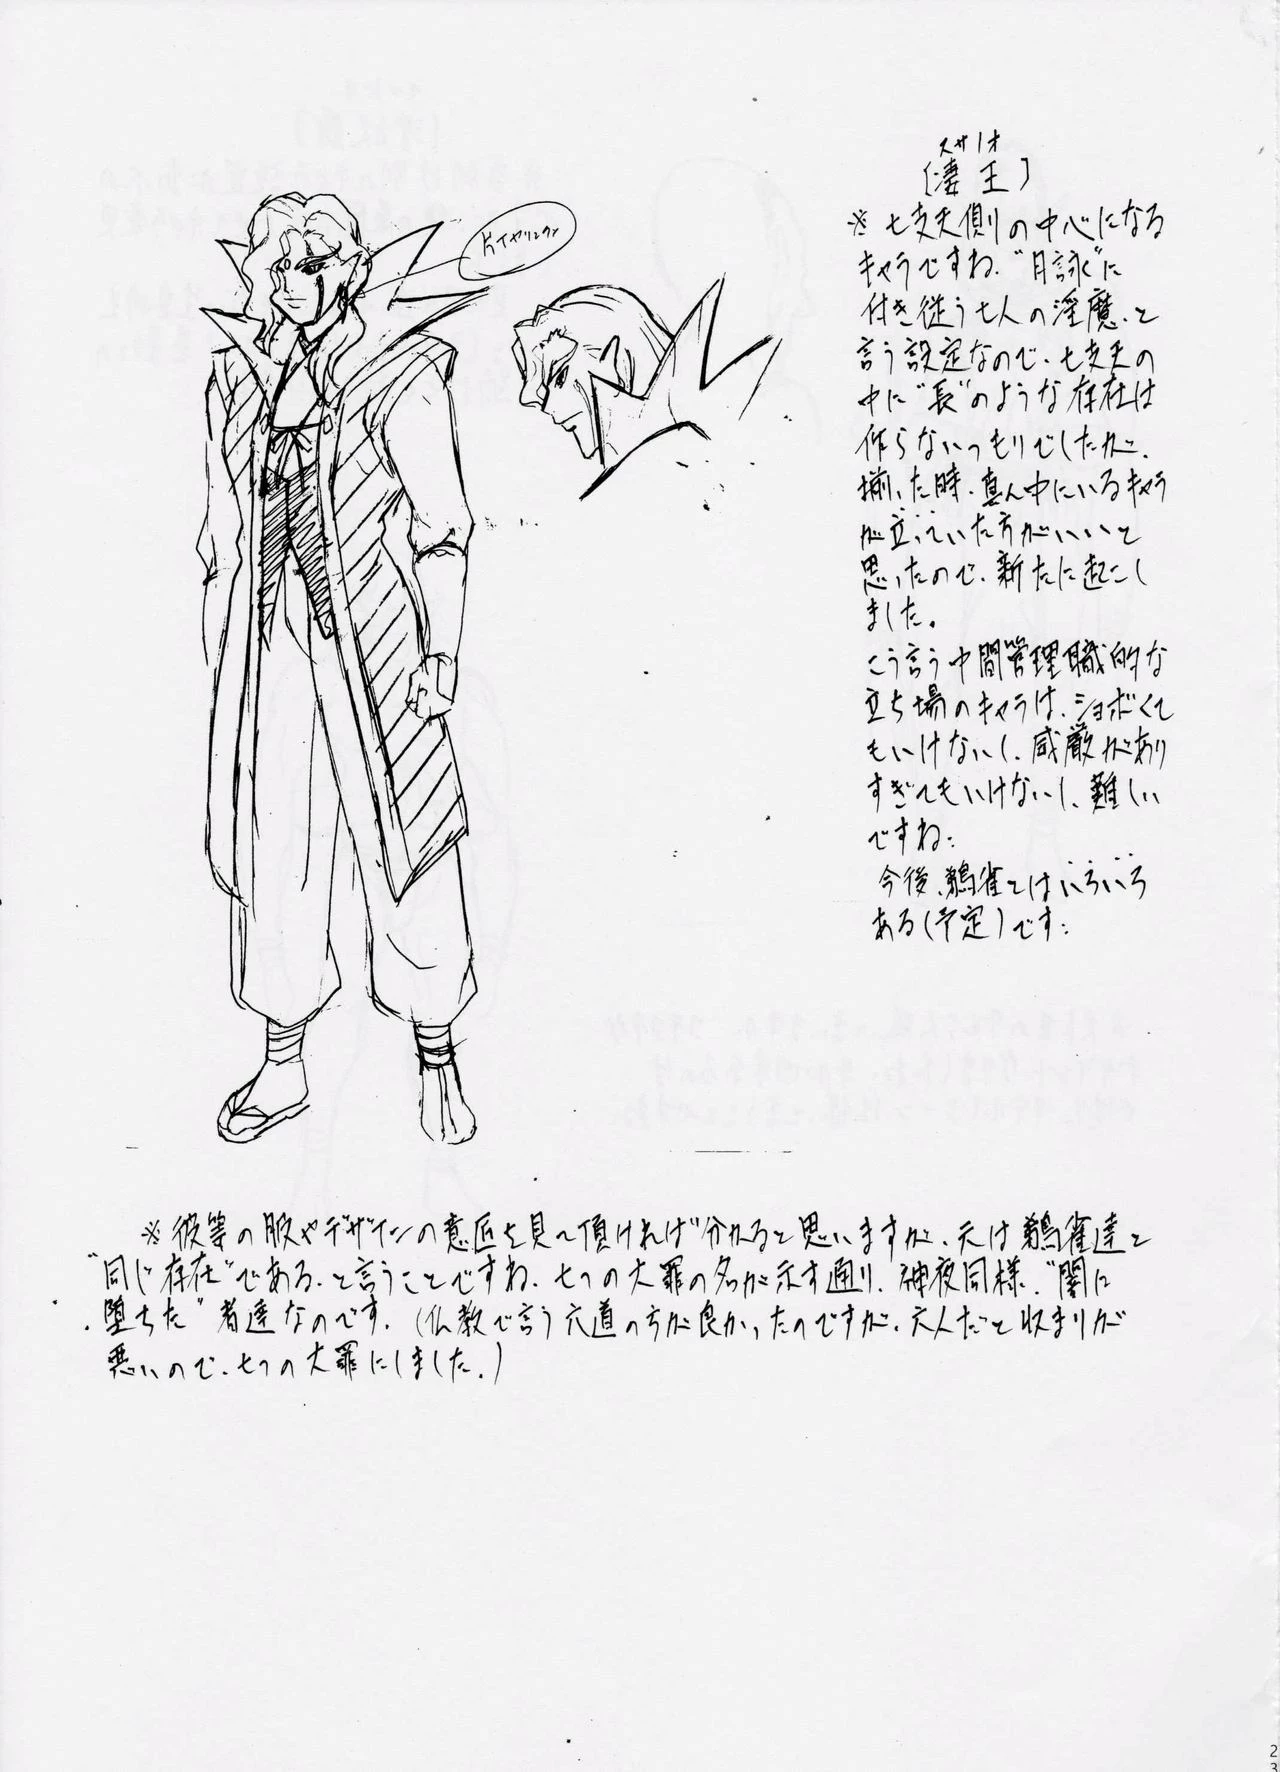 スサノオ
[凄王]
※七支天側の中心になる
キャラですね。“月詠”に
付き従う七人の淫魔、と
言う設定なので、七支天の
中に“長”のような存在は
作らないつもりでしたが、
揃った時、真ん中にいるキャラ
が立っていた方がいいと
思ったので、新たに起こし
ました。
こう言う中間管理職的な
立ち場のキャラは、ショボくて
もいけないし、威厳があり
すぎてもいけないし、難しい
ですね。
今後、鵺雀とはいろいろ
ある(予定)です。
片イヤリング
※彼等の服やデザインの意匠を見て頂ければ分かると思いますが、元は鵺雀達と
“同じ存在”である、と言うことですね。七つの大罪の名が示す通り、神夜同様、“闇に
堕ちた”者達なのです。(仏教で言う六道の方が良かったのですが、六人だと収まりが
悪いので、七つの大罪にしました。)
23